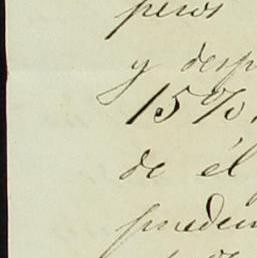 pesos
y desp
15%,
de él
pueden